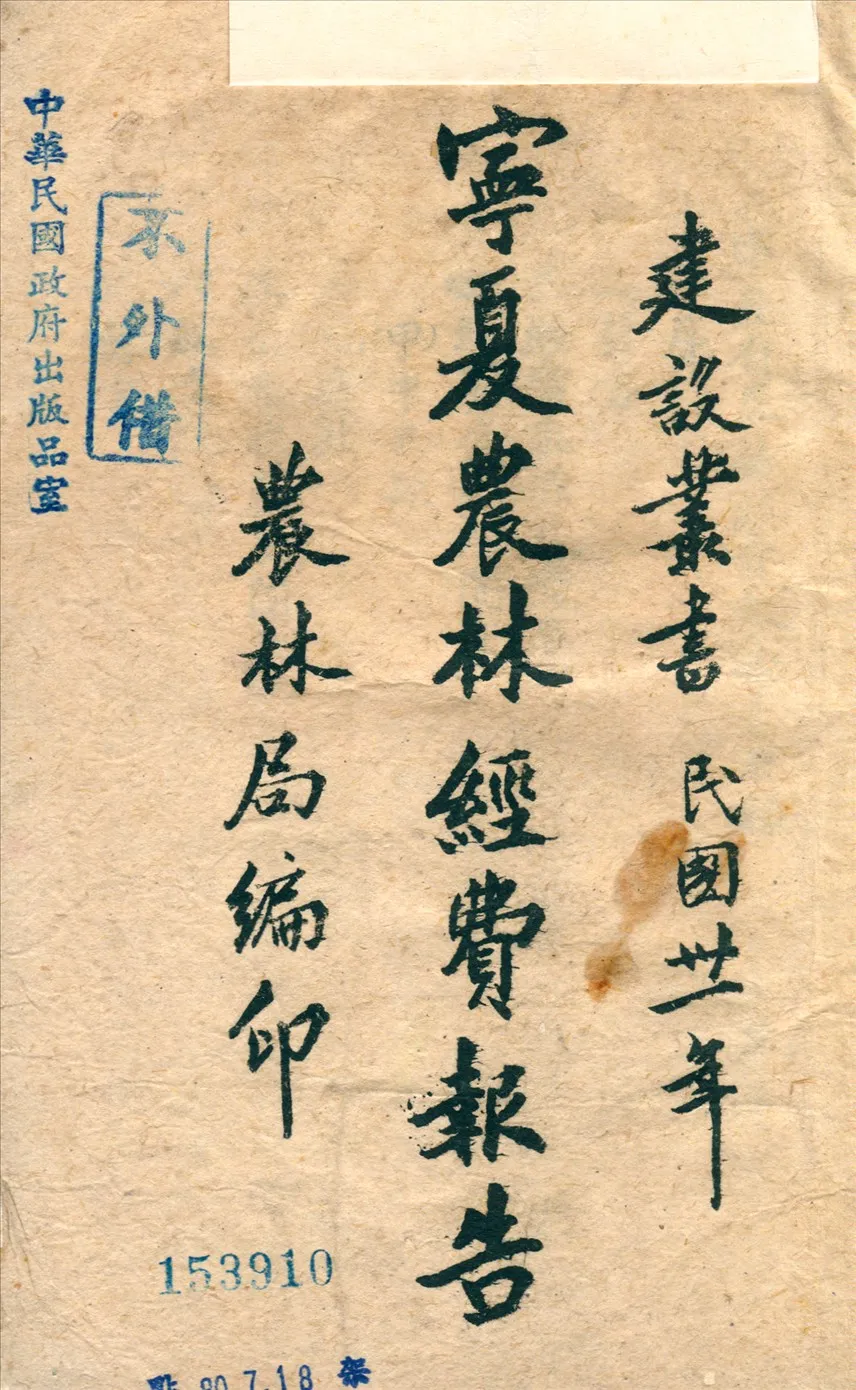 建設叢書 民國卅一年
寧夏農林經費報告
農林局編印
不外借
中華民國政府出版品室
153910
點 80.7.18